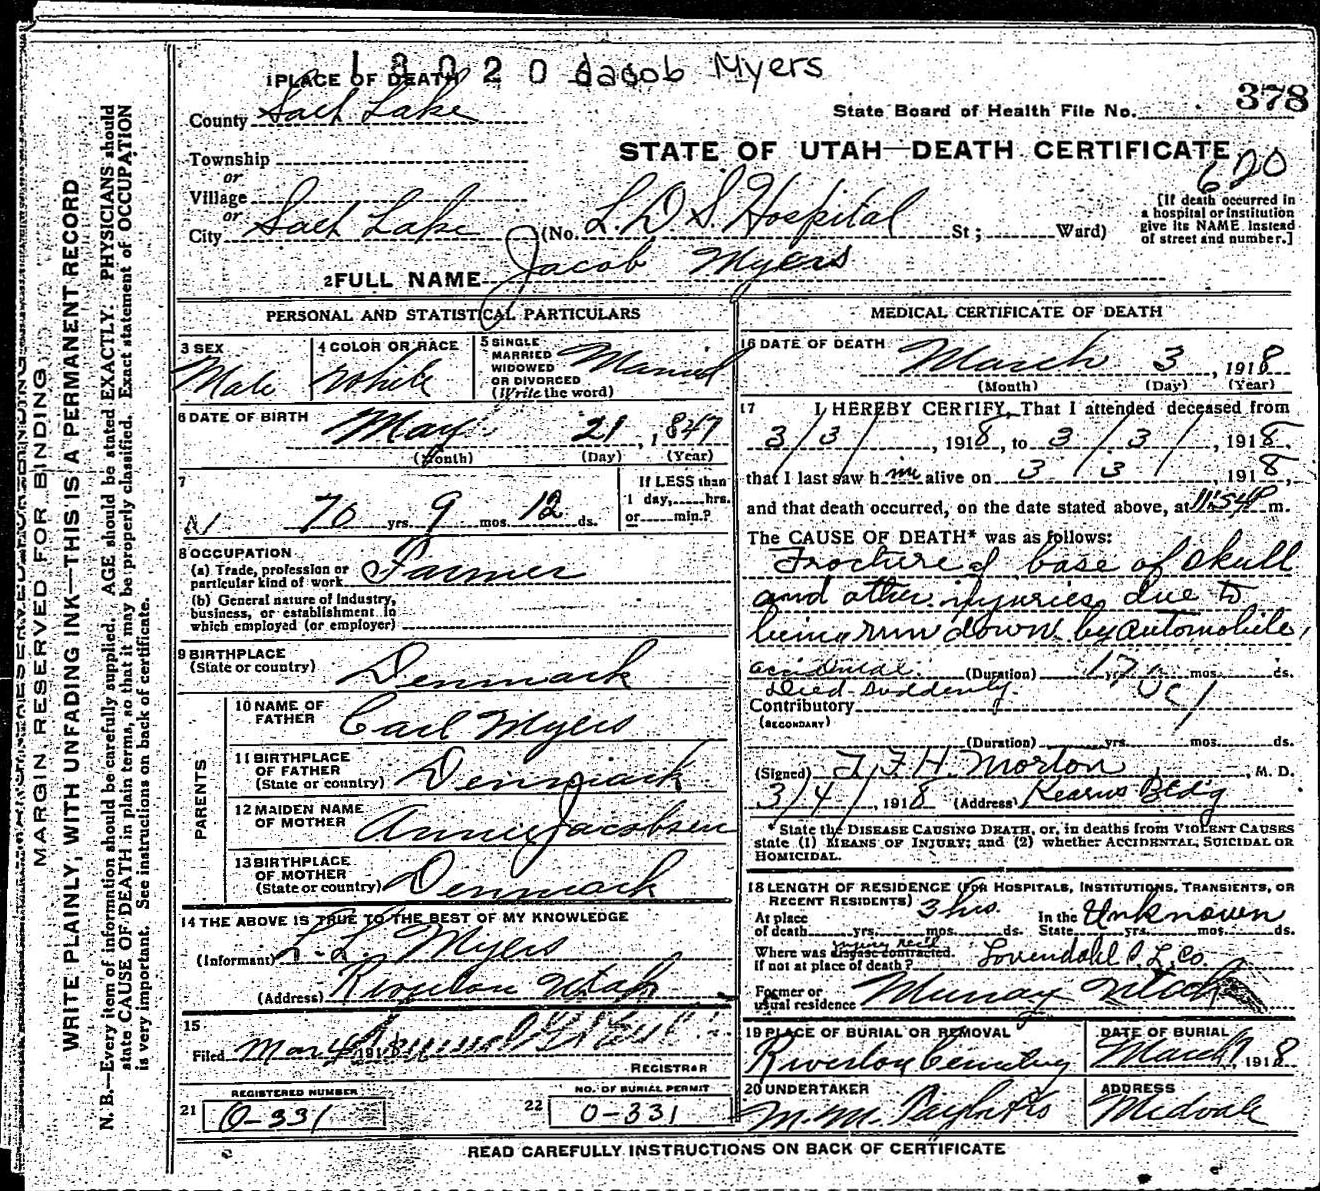 1 3 0 2 0 Jacob Myers
1 PLACE OF DEATH
County Salt Lake
State Board of Health File No. 378
STATE OF UTAH—DEATH CERTIFICATE
620
Township
or
Village
or
City Salt Lake (No. L.D.S. Hospital St; Ward)
[If death occurred in
a hospital or institution
give its NAME instead
of street and number.]
2 FULL NAME Jacob Myers
PERSONAL AND STATISTICAL PARTICULARS
3 SEX
Male
4 COLOR OR RACE
White
5 SINGLE
MARRIED
WIDOWED
OR DIVORCED
(Write the word)
Married
6 DATE OF BIRTH
May 21, 1847
(Month) (Day) (Year)
7
70 yrs. 9 mos. 12 ds.
If LESS than
1 day, hrs.
or min.?
8 OCCUPATION
(a) Trade, profession or
particular kind of work Farmer
(b) General nature of Industry,
business, or establishment in
which employed (or employer)
9 BIRTHPLACE
(State or country) Denmark
PARENTS
10 NAME OF
FATHER Carl Myers
11 BIRTHPLACE
OF FATHER
(State or country) Denmark
12 MAIDEN NAME
OF MOTHER Annie Jacobsen
13 BIRTHPLACE
OF MOTHER
(State or country) Denmark
14 THE ABOVE IS TRUE TO THE BEST OF MY KNOWLEDGE
(Informant) L. L. Myers
(Address) Riverton Utah
15
Filed 191
REGISTRAR
REGISTERED NUMBER
21 0-331
NO. OF BURIAL PERMIT
22 0-331
MEDICAL CERTIFICATE OF DEATH
16 DATE OF DEATH
March 3, 1918
(Month) (Day) (Year)
17 I HEREBY CERTIFY, That I attended deceased from
3/3/, 1918, to 3/3/, 1918,
that I last saw him alive on 3/3/ 1918,
and that death occurred, on the date stated above, at 11:54P m.
The CAUSE OF DEATH* was as follows:
Fracture of base of skull
and other injuries due to
being run down by automobile,
accidental. (Duration) yrs. mos. ds.
Died suddenly.
Contributory
(SECONDARY)
(Duration) yrs. mos. ds.
(Signed) F. F. H. Morton, M. D.
3/4/, 1918 (Address) Kearns Bldg
* State the DISEASE CAUSING DEATH, or, in deaths from VIOLENT CAUSES
state (1) MEANS OF INJURY; and (2) whether ACCIDENTAL, SUICIDAL OR
HOMICIDAL.
18 LENGTH OF RESIDENCE (FOR HOSPITALS, INSTITUTIONS, TRANSIENTS, OR
RECENT RESIDENTS)
At place
of death yrs. mos. ds. 3 hrs. In the
State yrs. mos. ds. Unknown
injury rec'd
Where was disease contracted.
If not at place of death? Lovendahl Co.
Former or
usual residence Murray Utah
19 PLACE OF BURIAL OR REMOVAL
Riverton Cemetery
DATE OF BURIAL
March 7, 1918
20 UNDERTAKER
M. M.
ADDRESS
Midvale
READ CAREFULLY INSTRUCTIONS ON BACK OF CERTIFICATE
MARGIN RESERVED FOR BINDING
WRITE PLAINLY, WITH UNFADING INK—THIS IS A PERMANENT RECORD
N. B.—Every item of information should be carefully supplied. AGE should be stated EXACTLY. PHYSICIANS should
state CAUSE OF DEATH in plain terms, so that it may be properly classified. Exact statement of OCCUPATION
is very important. See instructions on back of certificate.